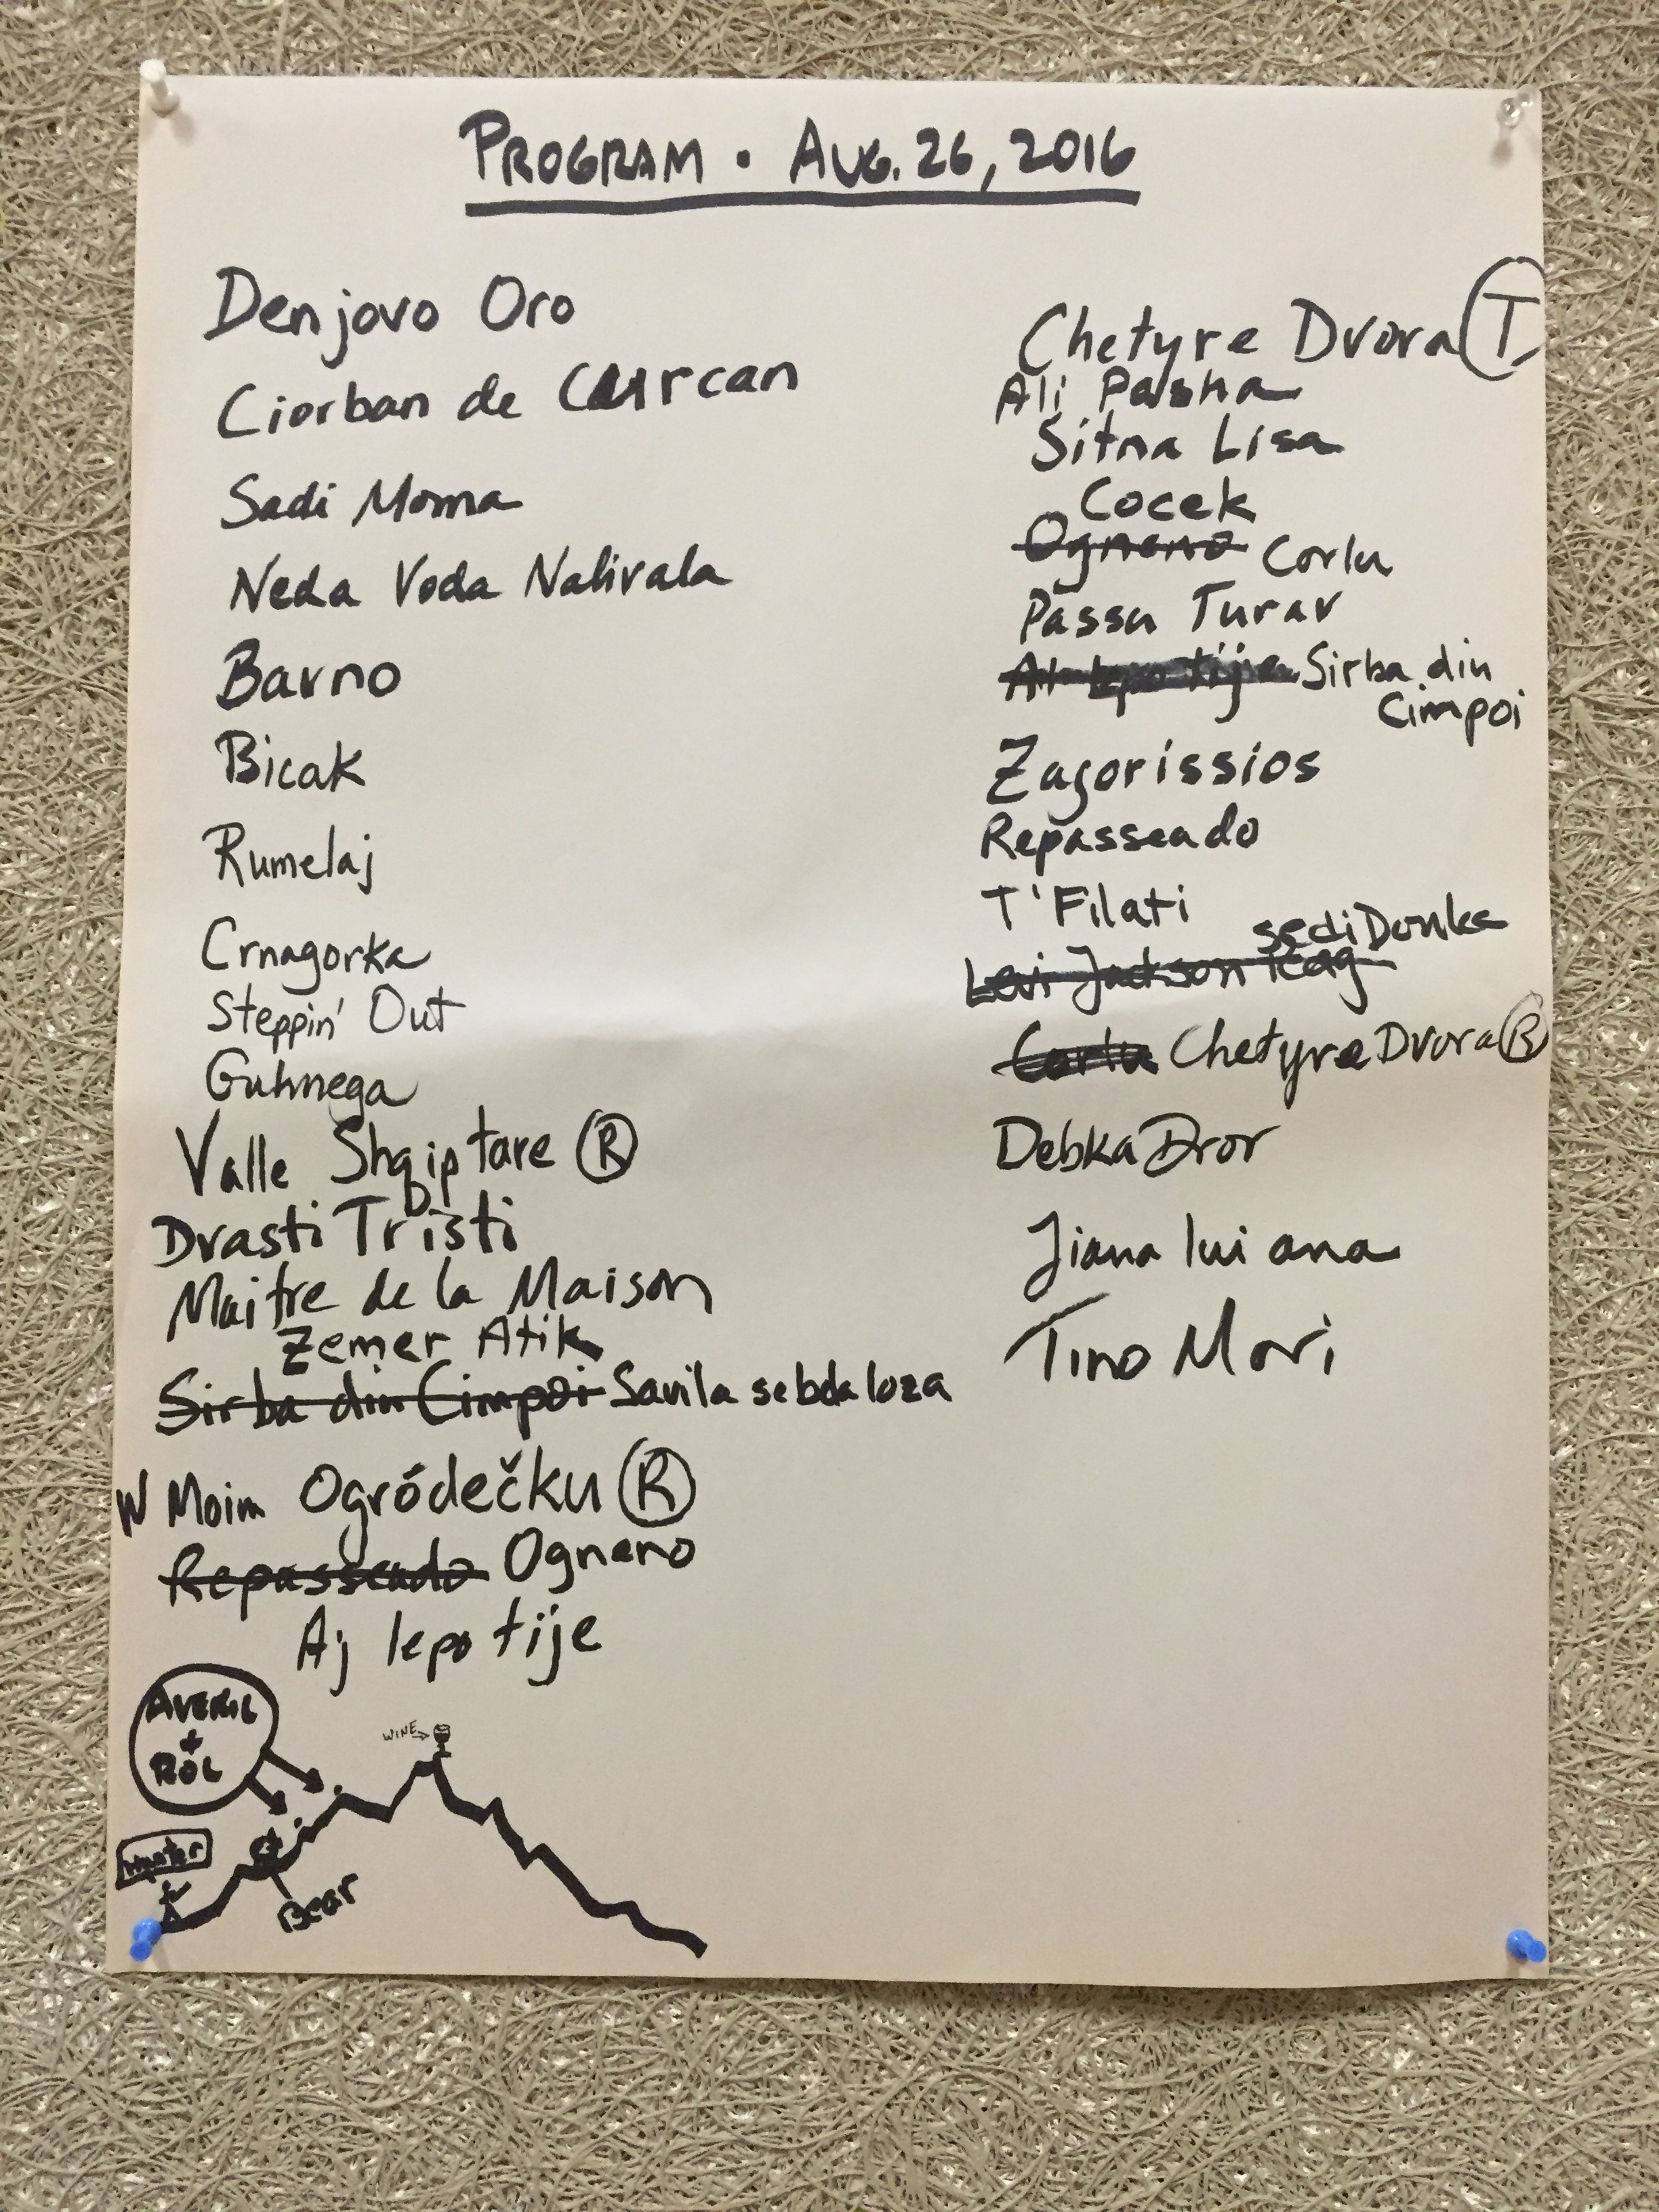 PROGRAM • AUG. 26, 2016
Denjovo Oro
Ciorban de Curcan
Sadi Moma
Neda Voda Nalivala
Bavno
Bicak
Rumelaj
Crnagorka
Steppin' Out
Guhnega
Valle Shqiptare Ⓡ
Drasti Tristi
Maitre de la Maison
Zemer Atik
Sirba din Cimpoi Savila se bda loza
W Moim Ogródečku Ⓡ
Repasseado Ogneno
Aj lepo tije
AVERIL
+
ROL
WINE
Hunter
Bear
Chetyre Dvora Ⓣ
Ali Pasha
Sitna Lisa
Cocek
Ogneno Corlu
Passu Turav
Aj lepo tije Sirba din
Cimpoi
Zagorissios
Repasseado
T'Filati
Sedi Donka
Levi Jackson Rag
Corlu Chetyre Dvora Ⓡ
Debka Dror
Jiana lui ana
Tino Mori